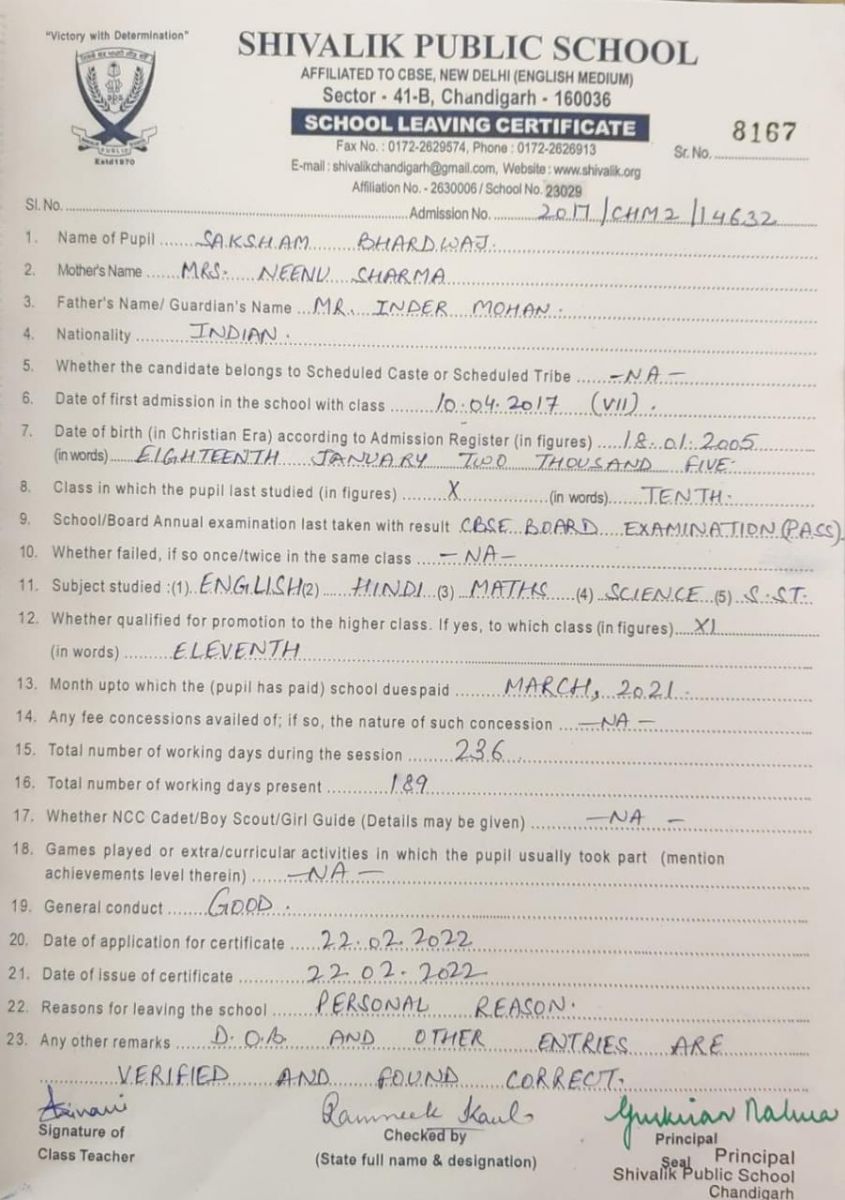 "Victory with Determination"
SHIVALIK PUBLIC SCHOOL
AFFILIATED TO CBSE, NEW DELHI (ENGLISH MEDIUM)
Sector - 41-B, Chandigarh - 160036
SCHOOL LEAVING CERTIFICATE
Estd1970
Fax No. : 0172-2629574, Phone : 0172-2626913
Sr. No. 8167
E-mail : shivalikchandigarh@gmail.com, Website : www.shivalik.org
Affiliation No. - 2630006 / School No. 23029
Sl. No. Admission No. 2017/CHM2/14632
1. Name of Pupil SAKSHAM BHARDWAJ.
2. Mother's Name MRS. NEENU SHARMA
3. Father's Name/ Guardian's Name MR. INDER MOHAN.
4. Nationality INDIAN.
5. Whether the candidate belongs to Scheduled Caste or Scheduled Tribe -NA-
6. Date of first admission in the school with class 10.04.2017 (VII).
7. Date of birth (in Christian Era) according to Admission Register (in figures) 18.01.2005
(in words) EIGHTEENTH JANUARY TWO THOUSAND FIVE.
8. Class in which the pupil last studied (in figures) X (in words) TENTH.
9. School/Board Annual examination last taken with result CBSE BOARD EXAMINATION (PASS).
10. Whether failed, if so once/twice in the same class -NA-
11. Subject studied :(1) ENGLISH (2) HINDI (3) MATHS (4) SCIENCE (5) S.ST.
12. Whether qualified for promotion to the higher class. If yes, to which class (in figures) XI
(in words) ELEVENTH
13. Month upto which the (pupil has paid) school duespaid MARCH, 2021.
14. Any fee concessions availed of; if so, the nature of such concession -NA-
15. Total number of working days during the session 236
16. Total number of working days present 189
17. Whether NCC Cadet/Boy Scout/Girl Guide (Details may be given) -NA-
18. Games played or extra/curricular activities in which the pupil usually took part (mention
achievements level therein) -NA-
19. General conduct GOOD.
20. Date of application for certificate 22.02.2022
21. Date of issue of certificate 22.02.2022
22. Reasons for leaving the school PERSONAL REASON.
23. Any other remarks D.O.B AND OTHER ENTRIES ARE
VERIFIED AND FOUND CORRECT.
Ramneek Kaul
Signature of Checked by Principal
Class Teacher (State full name & designation) Seal Principal
Shivalik Public School
Chandigarh